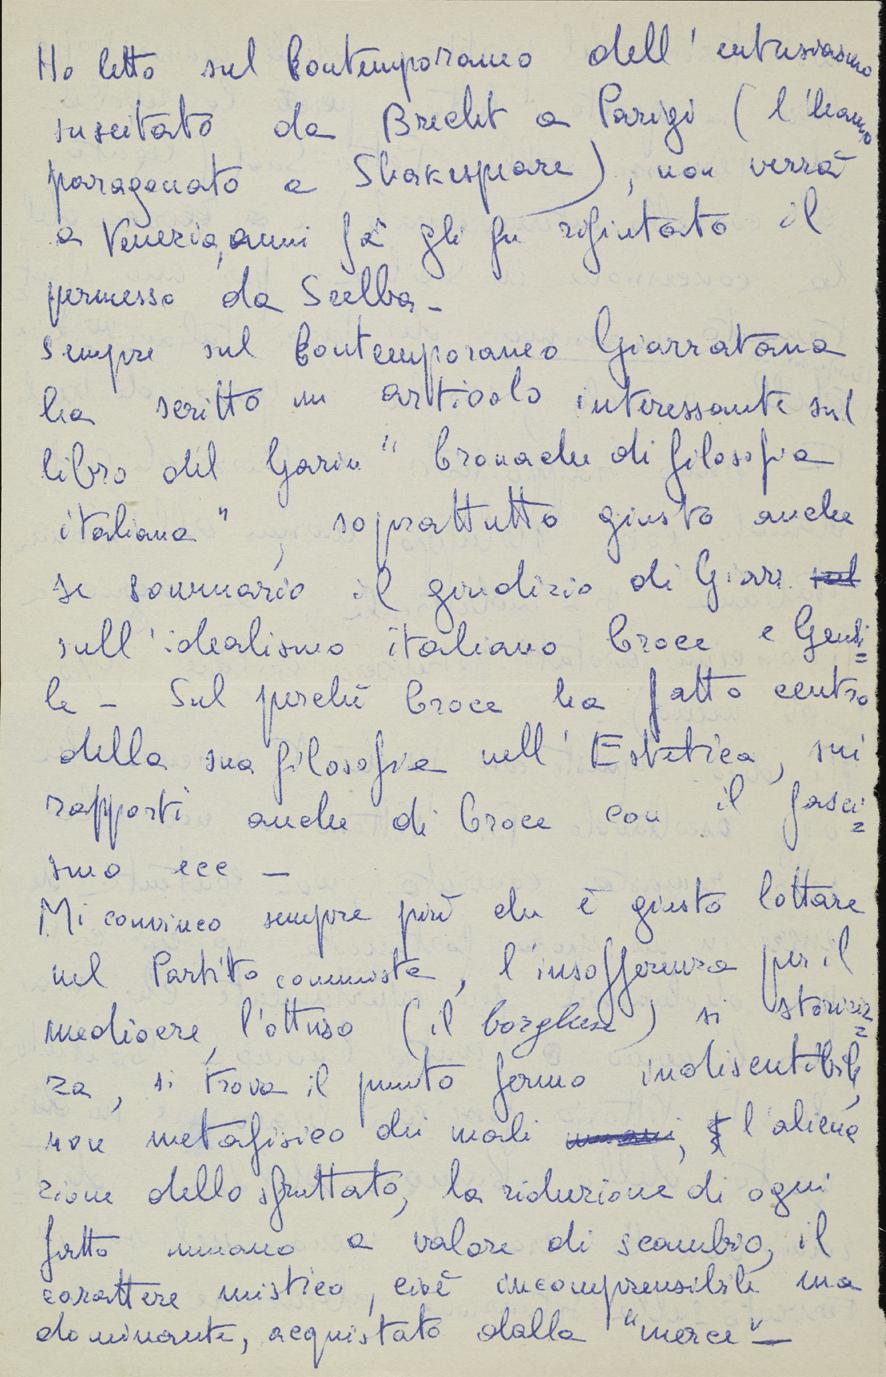 Ho letto sul Contemporaneo dell'entusiasmo
suscitato da Brecht a Parigi (l'hanno
paragonato a Shakespeare), non verrà
a Venezia, anni fà gli fu rifiutato il
permesso da Scelba -
Sempre sul Contemporaneo Giarratana
ha scritto un articolo interessante sul
libro del Garin "Cronache di filosofia
italiana", soprattutto giusto anche
se sommario il giudizio di Giarr. sul
sull'idealismo italiano Croce e Genti=
le - Sul perchè Croce ha fatto centro
della sua filosofia nell'Estetica, sui
rapporti anche di Croce con il fasci=
smo ecc -
Mi convinco sempre più che è giusto lottare
nel Partito comunista, l'insofferenza per il
mediocre, l'ottuso (il borghese) si storiciz=
za, si trova il punto fermo indiscutibile,
non metafisico dei mali umani, l'aliena
zione dello sfruttato, la riduzione di ogni
fatto umano a valore di scambio, il
carattere mistico, cioè incomprensibile ma
dominante, acquistato dalla "merce" -